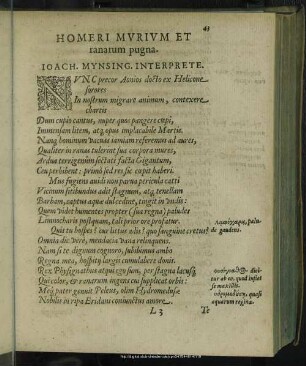 43
HOMERI MVRIVM ET
ranarum pugna.
IOACH. MYNSING. INTERPRETE.
NVNC precor Aonios docto ex Helicone
sorores
In nostrum migrare animum, contexere
chartis
Dum cupio cantus, nuper quos pangere cœpi,
Immensam litem, atq; opus implacabile Martis.
Nanq; hominum vacuas tantum referemus ad aures,
Qualiter in ranas tulerint sua corpora mures,
Ardua terrigenûm sectati facta Gigantum,
Ceu perhibent: primò sed res sic cœpit haberi.
Mus fugiens auidi non parua pericula catti
Vicinum sitibundus adit stagnum, atq; tenellam
Barbam, captus aquæ dulcedine, tingit in vndis:
Quem videt humentes propter (sua regna) paludes
Limnocharis postquam, tali prior ore profatur.
Quis tu hospes? seu littus adis? quo sanguine cretus?
Omnia dic verè, mendacia vana relinquens.
Nam si te dignum cognoro, subibimus ambo
Regna mea, hospitij largis cumulabere donis.
Rex Physignathus atqui ego sum, per stagna lacusq;
Qui color, & ranarum ingens cui supplicat orbis:
Meq; pater genuit Peleus, olim Hydromedusæ
Nobilis in ripa Eridani coniunctus amore.
palu-
de gaudens.
dici-
tur ab eo, quod inflat
se maxillis.
quasi
aquarum regina.
L 3